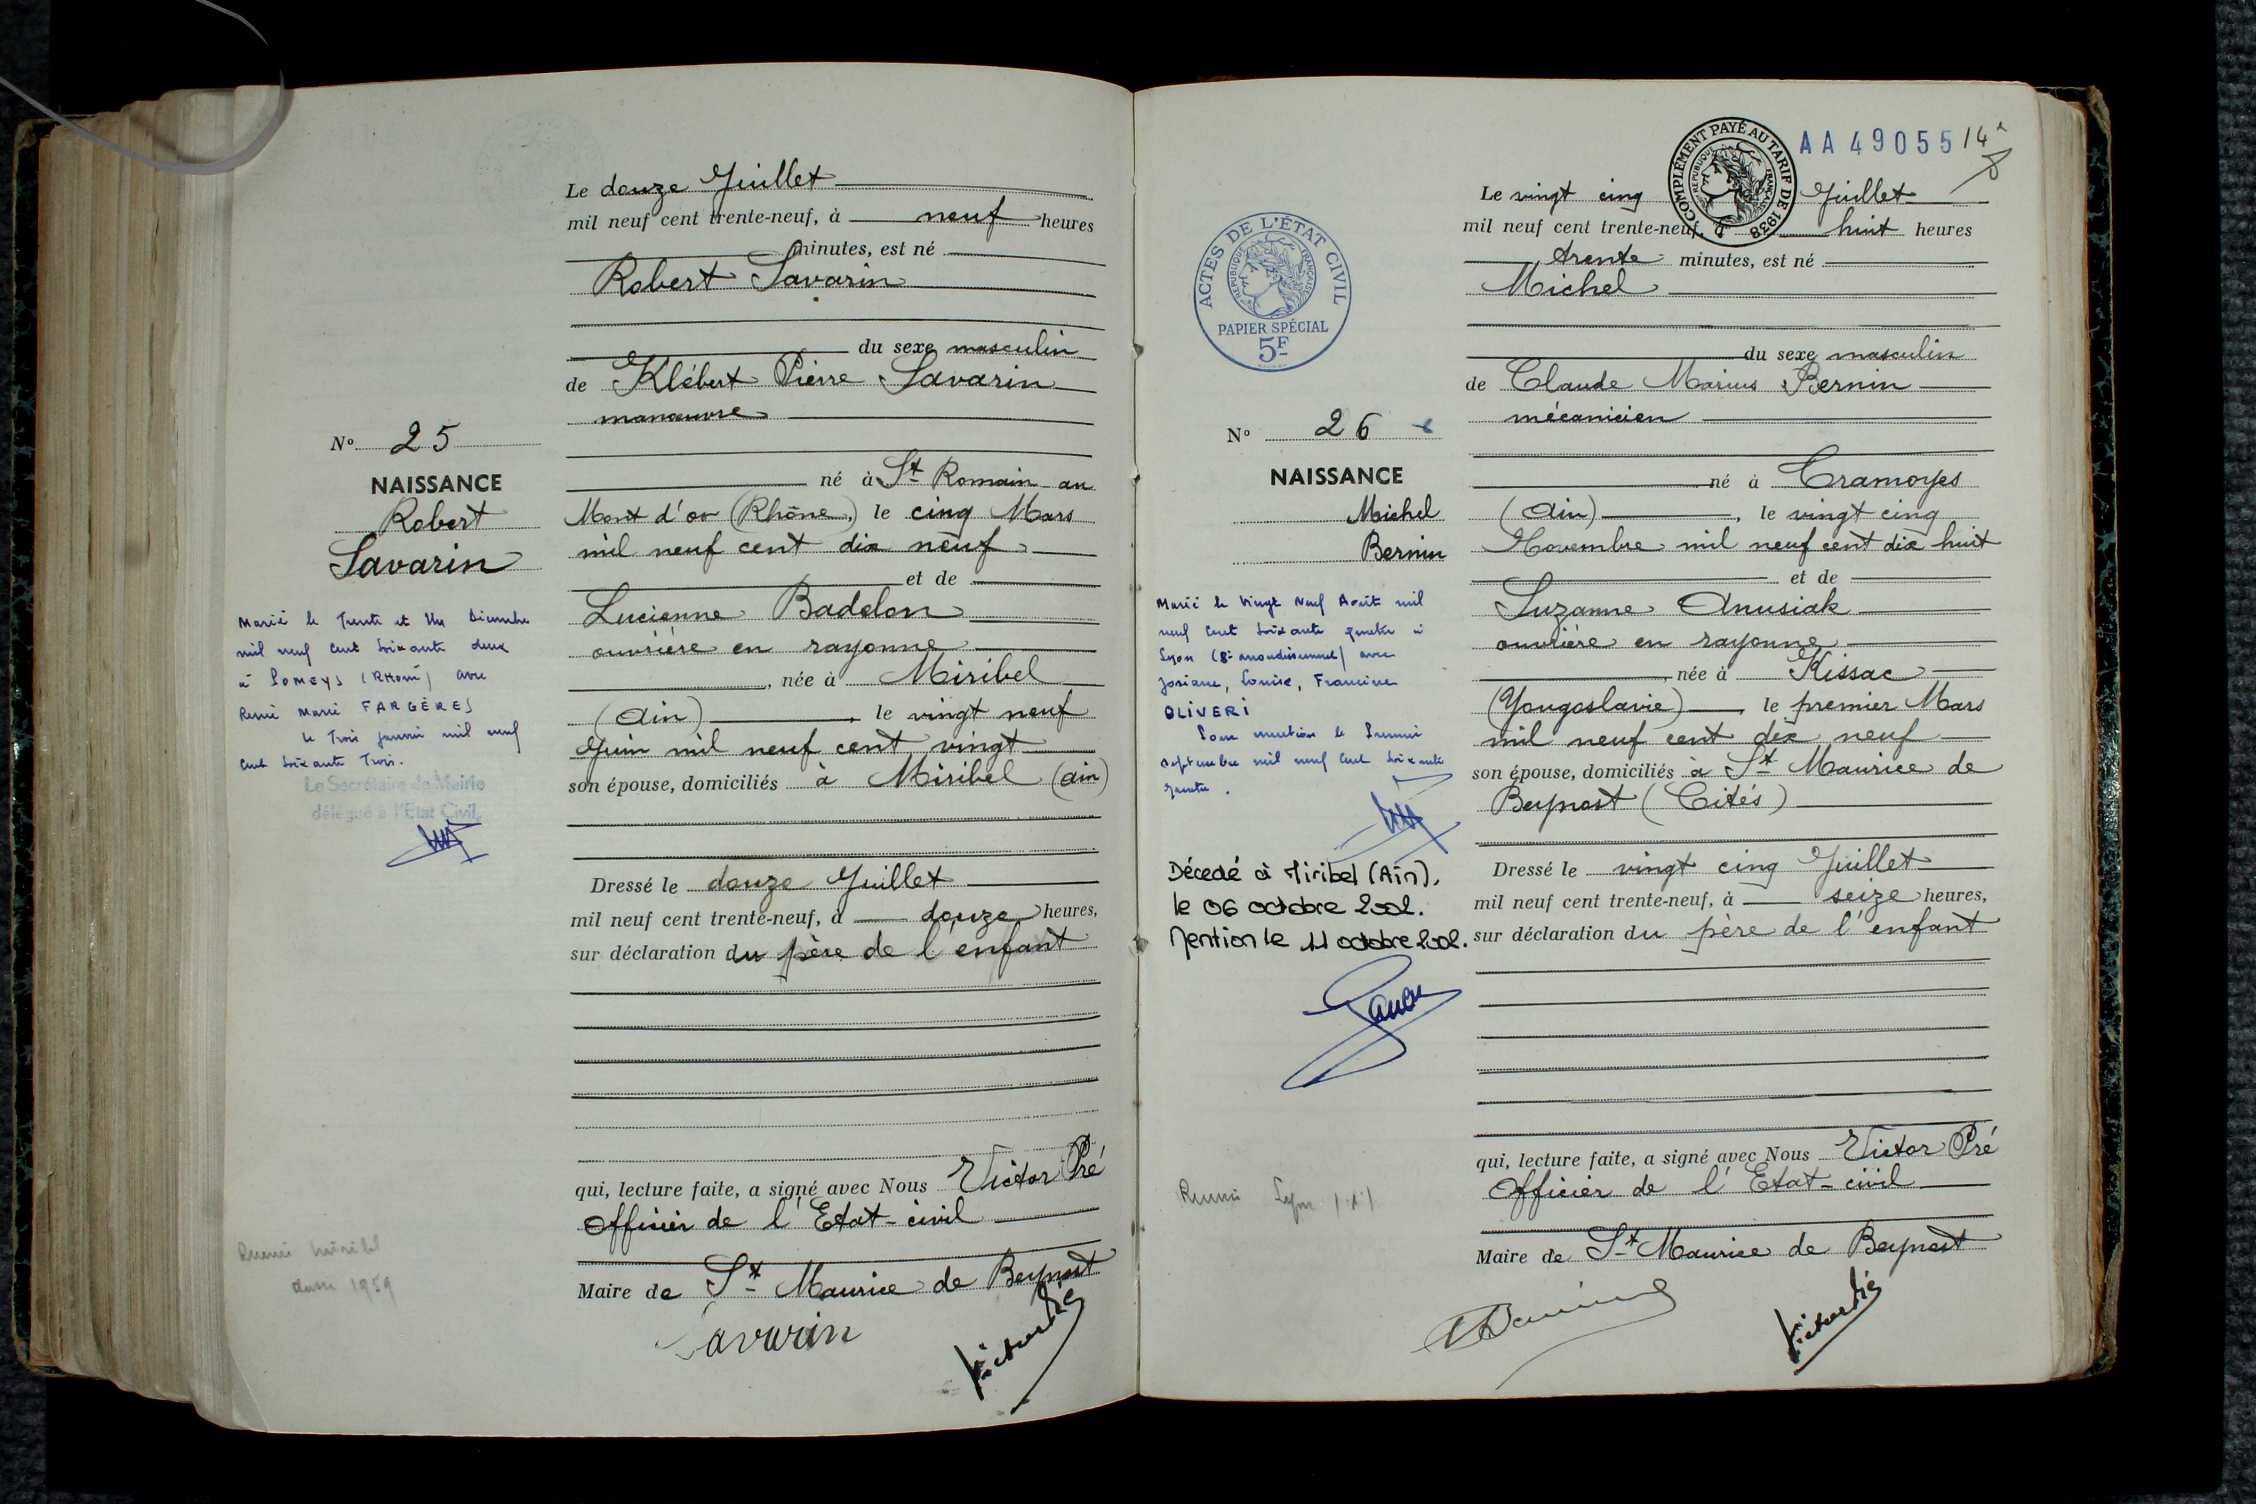 Le douze Juillet
mil neuf cent trente-neuf, à neuf heures
minutes, est né
Robert Savarin
du sexe masculin
de Klébert Pierre Savarin
manœuvre
né à St Romain au
Mont d'or (Rhône), le cinq Mars
mil neuf cent dix neuf
et de
Lucienne Badelon
ouvrière en rayonne
, née à Miribel
(Ain), le vingt neuf
Juin mil neuf cent vingt
son épouse, domiciliés à Miribel (Ain)
Dressé le douze Juillet
mil neuf cent trente-neuf, à douze heures,
sur déclaration du père de l'enfant
qui, lecture faite, a signé avec Nous Victor Pré
Officier de l'Etat-civil
Maire de St Maurice de Beynost
Savarin
Victor Pré
No 25
NAISSANCE
Robert
Savarin
Marié le Trente et Un Décembre
mil neuf cent soixante deux
à POMEYS (Rhône) avec
Renée Marie FARGÈRES
le Trois janvier mil neuf
cent soixante Trois.
Le Secrétaire de Mairie
délégué à l'Etat Civil,
1959
AA 49055
COMPLÉMENT PAYÉ AU TARIF DE 1938
RÉPUBLIQUE FRANÇAISE
Le vingt cinq Juillet
mil neuf cent trente-neuf, à huit heures
trente minutes, est né
Michel
du sexe masculin
de Claude Marius Bernin
mécanicien
né à Cramoyes
(Ain), le vingt cinq
Novembre mil neuf cent dix huit
et de
Suzanne Anusiak
ouvrière en rayonne
, née à Kissac
(Yougoslavie), le premier Mars
mil neuf cent dix neuf
son épouse, domiciliés à St Maurice de
Beynost (Cités)
Dressé le vingt cinq Juillet
mil neuf cent trente-neuf, à seize heures,
sur déclaration du père de l'enfant
qui, lecture faite, a signé avec Nous Victor Pré
Officier de l'Etat-civil
Maire de St Maurice de Beynost
Victor Pré
ACTES DE L'ÉTAT CIVIL
RÉPUBLIQUE FRANÇAISE
PAPIER SPÉCIAL
5F
No 26
NAISSANCE
Michel
Bernin
Marié le Vingt Neuf Août mil
neuf cent soixante quatre à
Lyon (8e arrondissement) avec
Josiane, Louise, Francine
OLIVERI
Pour mention le Premier
septembre mil neuf cent soixante
quatre.
Décédé à Miribel (Ain),
le 06 octobre 2002.
Mention le 11 octobre 2002.